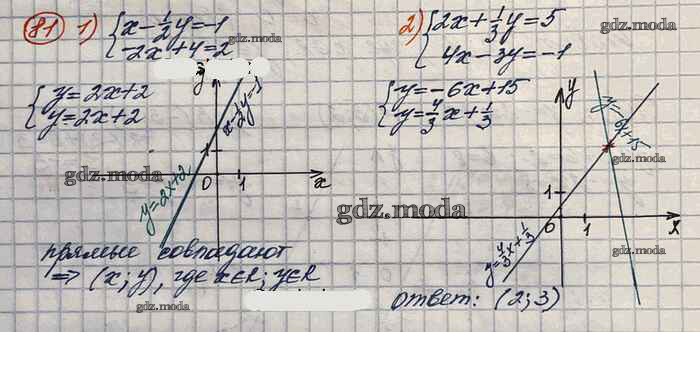 81 1) { x - 1/2 y = -1
-2x + y = 2
gdz.moda
{ y = 2x + 2
y = 2x + 2
y
x - 1/2 y = -1
1
gdz.moda
0 1 x
y = 2x + 2
прямые совпадают
=> (x; y), где x∈R; y∈R
gdz.moda
2) { 2x + 1/3 y = 5
4x - 3y = -1
gdz.moda
{ y = -6x + 15
y = 4/3 x + 1/3
y
y = -6x + 15
gdz.moda
1
gdz.moda
0 1 x
y = 4/3 x + 1/3
gdz.moda
ответ: (2; 3)